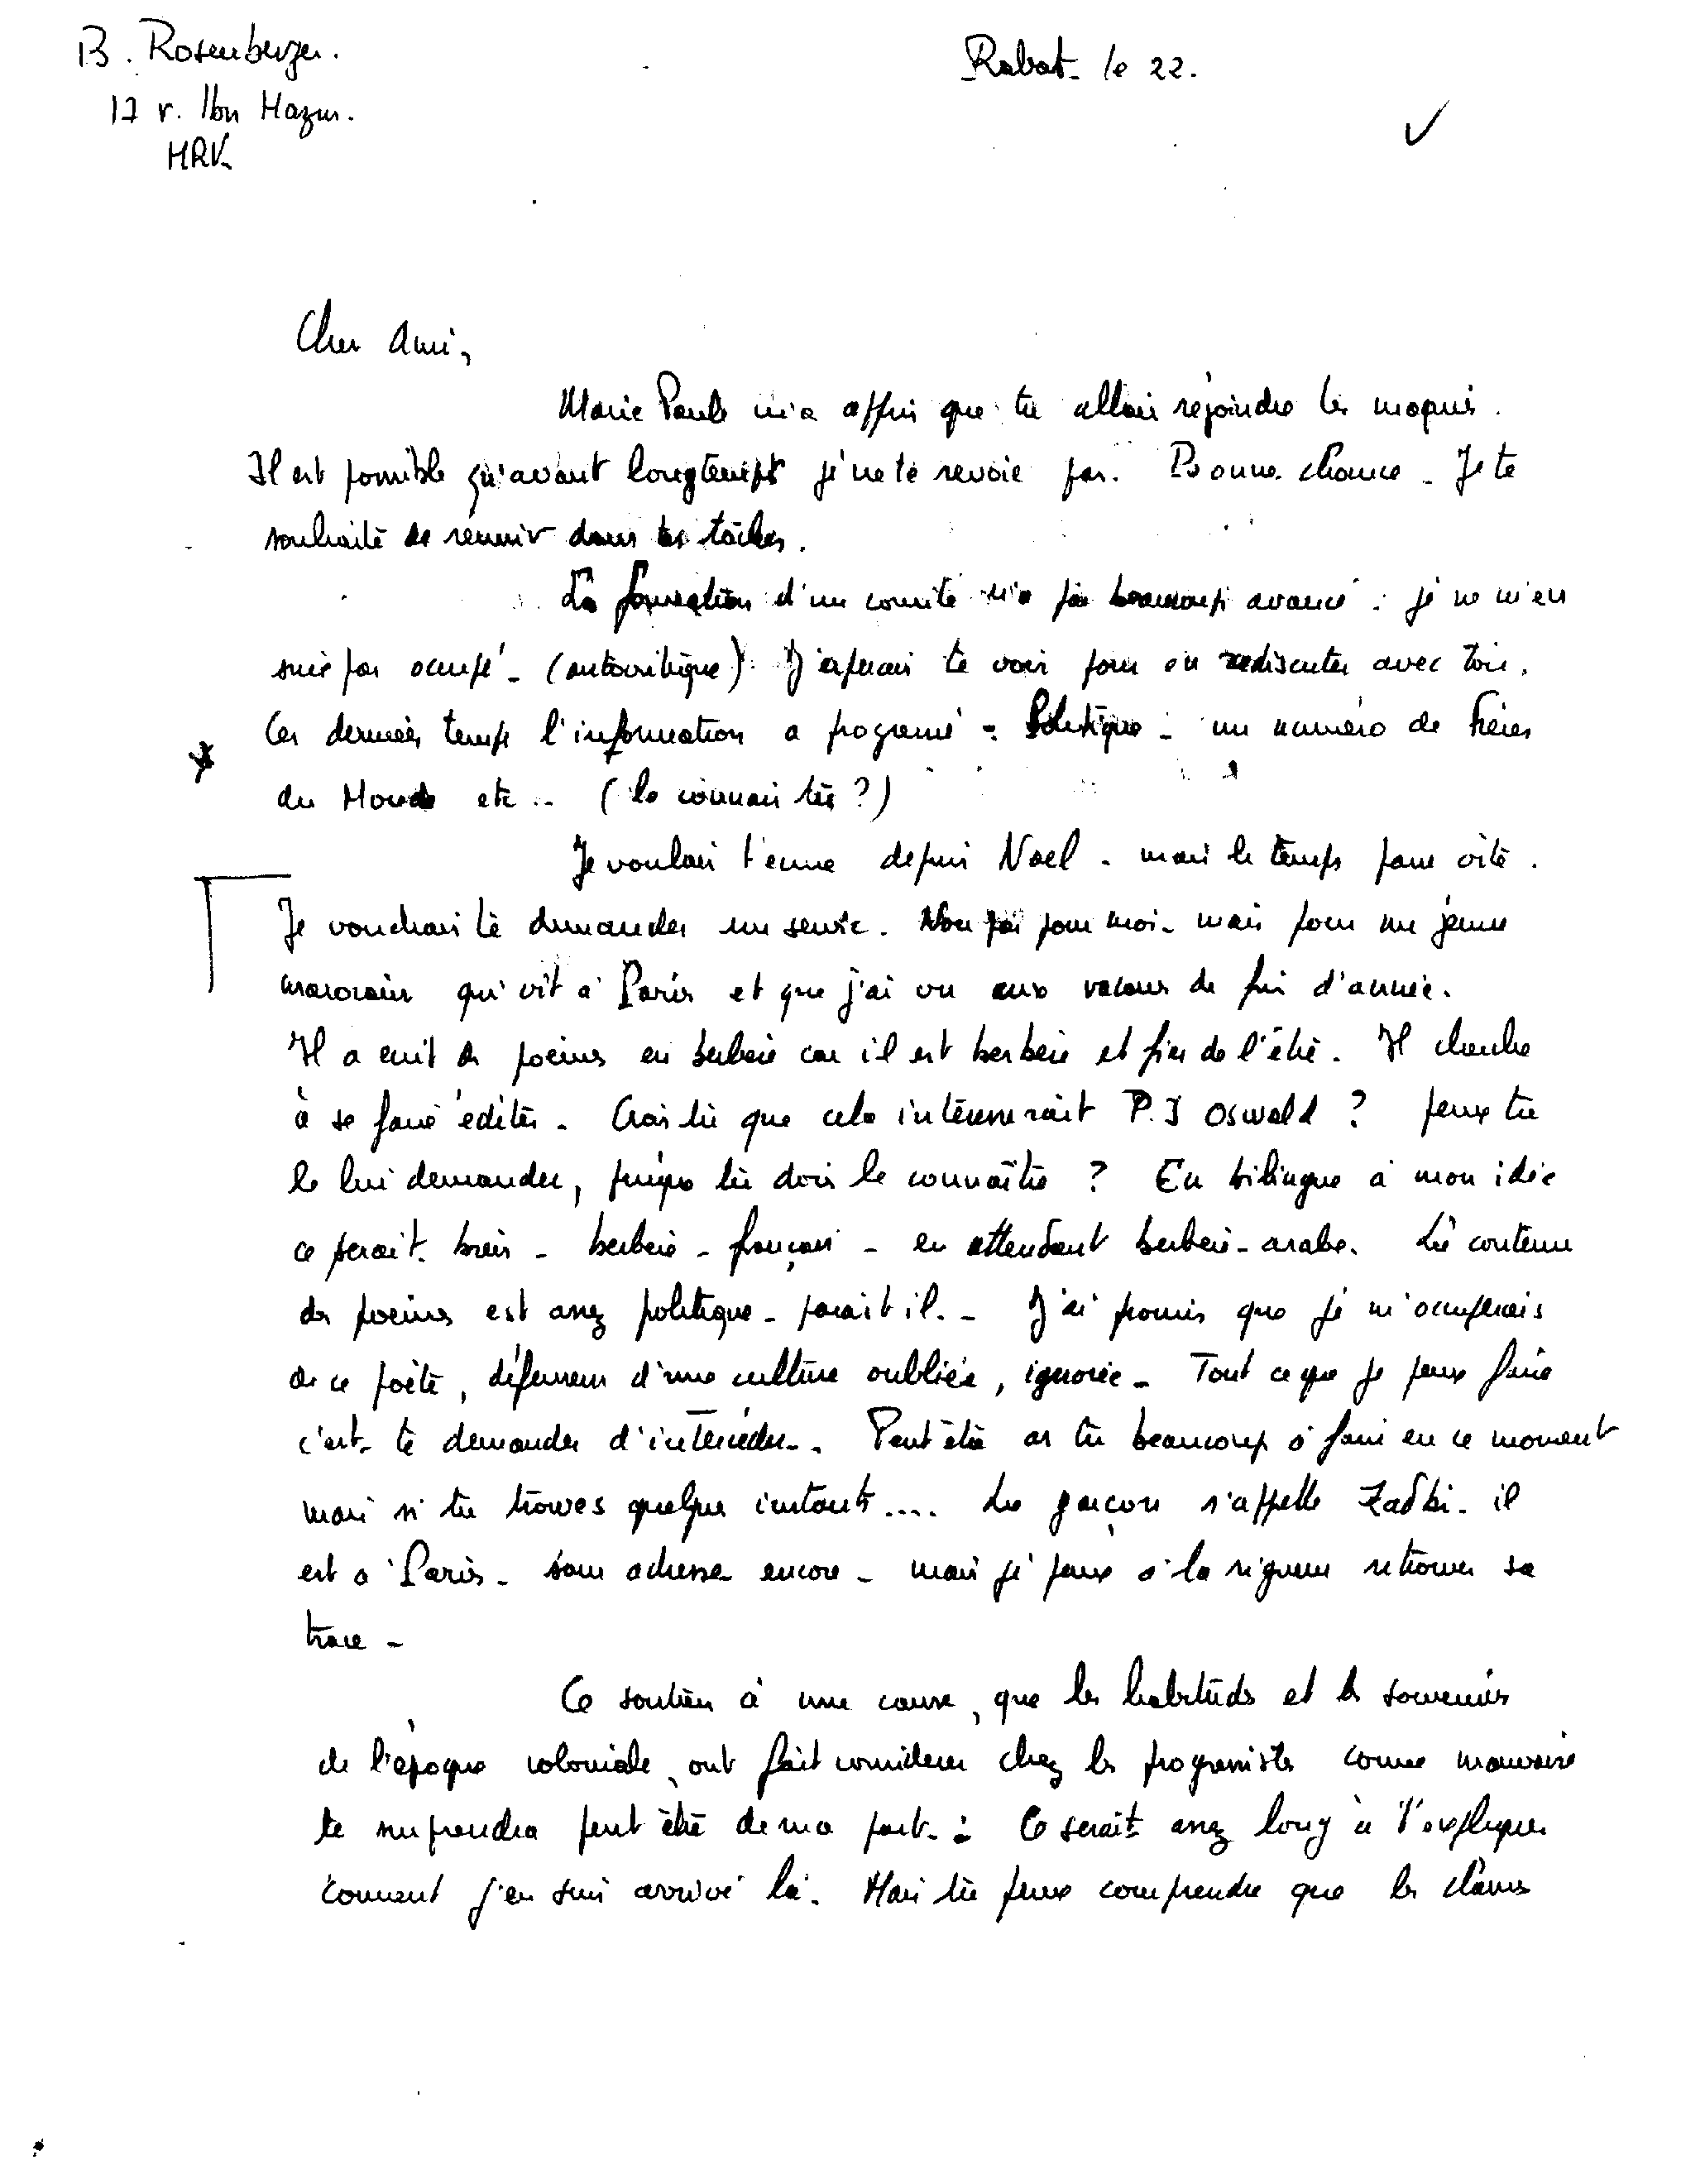 B. Rosenberger.
Rabat le 22.
17 r. Ibn Hazm.
MRK
Cher Ami,
Marie Paule m'a appris que tu allais rejoindre les maquis.
Il est possible qu'avant longtemps je ne te revoie pas. Bonne chance - Je te
souhaite de réussir dans tes tâches.
La formation d'un comité n'a pas beaucoup avancé : je ne m'en
suis pas occupé - (autocritique) J'espérais te voir pour en rediscuter avec toi.
Ces derniers temps l'information a progressé - Politique - un numéro de Frères
du Monde etc .. (le connais tu ?)
Je voulais t'écrire depuis Noel - mais le temps passe vite.
Je voudrais te demander un service. Non pas pour moi - mais pour un jeune
marocain qui vit à Paris et que j'ai vu aux vacances de fin d'année.
Il a écrit des poèmes en berbère car il est berbère et fier de l'être. Il cherche
à se faire éditer - Crois tu que cela intéresserait P.J Oswald ? peux tu
le lui demander, puisque tu dois le connaître ? En bilingue à mon idée
ce serait bien - berbère - français - en attendant berbère-arabe. Le contenu
des poèmes est assez politique - parait il. - J'ai promis que je m'occuperais
de ce poète, défenseur d'une culture oubliée, ignorée - Tout ce que je peux faire
c'est te demander d'intercéder - . Peut être as tu beaucoup à faire en ce moment
mais si tu trouves quelques instants .... Le garçon s'appelle Zadki - il
est à Paris - sans adresse encore - mais je peux à la rigueur retrouver sa
trace -
Ce soutien à une cause, que les habitudes et les souvenirs
de l'époque coloniale, ont fait considérer chez les progressistes comme mauvaise
te surprendra peut être de ma part - : Ce serait assez long à t'expliquer
comment j'en suis arrivé là. Mais tu peux comprendre que les classes